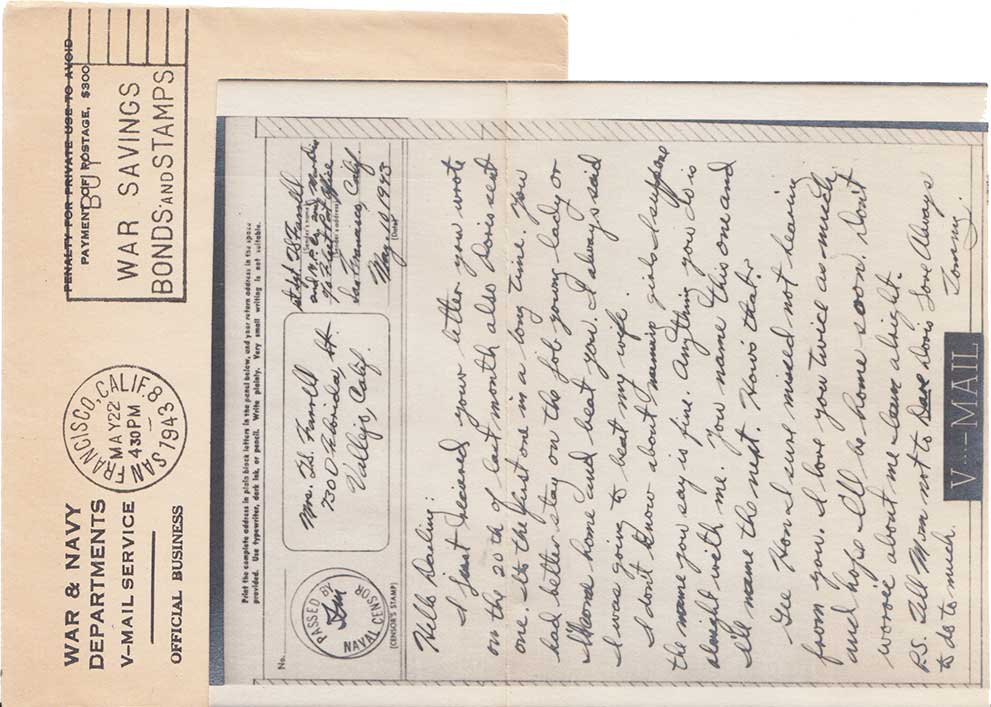 WAR & NAVY
DEPARTMENTS
V-MAIL SERVICE
OFFICIAL BUSINESS
SAN FRANCISCO, CALIF. 8
MAY 22
4 30 PM
1943
PENALTY FOR PRIVATE USE TO AVOID
PAYMENT OF POSTAGE, $300
BUY
WAR SAVINGS
BONDS AND STAMPS
Print the complete address in plain block letters in the panel below, and your return address in the space
provided. Use typewriter, dark ink, or pencil. Write plainly. Very small writing is not suitable.
No.
PASSED BY
NAVAL CENSOR
(CENSOR'S STAMP)
Mrs. T.S. Farrell
730 D Florida St.
Vallejo, Calif.
St Sgt T.S. Farrell
(Sender's name)
Fleet Post Office
(Sender's address)
San Francisco, Calif
May-10-1943
(Date)
Hello Darling:
I just recieved your letter you wrote
on the 20th of last month also Doris sent
one. Its the first one in a long time. You
had better stay on the job young lady or
I'll come home and beat you. I always said
I was going to beat my wife.
I don't know about namein girls I suppose
the name you say is fine. Anything you do is
alright with me. You name this one and
I'll name the next. How's that?
Gee Hon I sure missed not hearing
from you. I love you twice as much
and hope I'll be home soon. Don't
worrie about me I am alright.
P.S. Tell Mom not to Dare Doris Love Always
to do to much Tommy.
V---MAIL